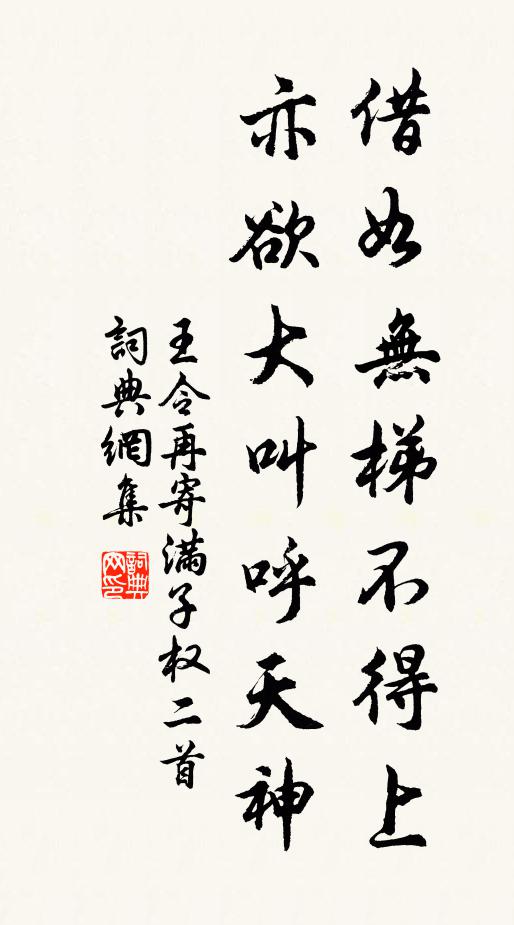 借如無梯不得上
亦欲大叫呼天神
王令再寄滿子权二首
詞典網集
詞典网印